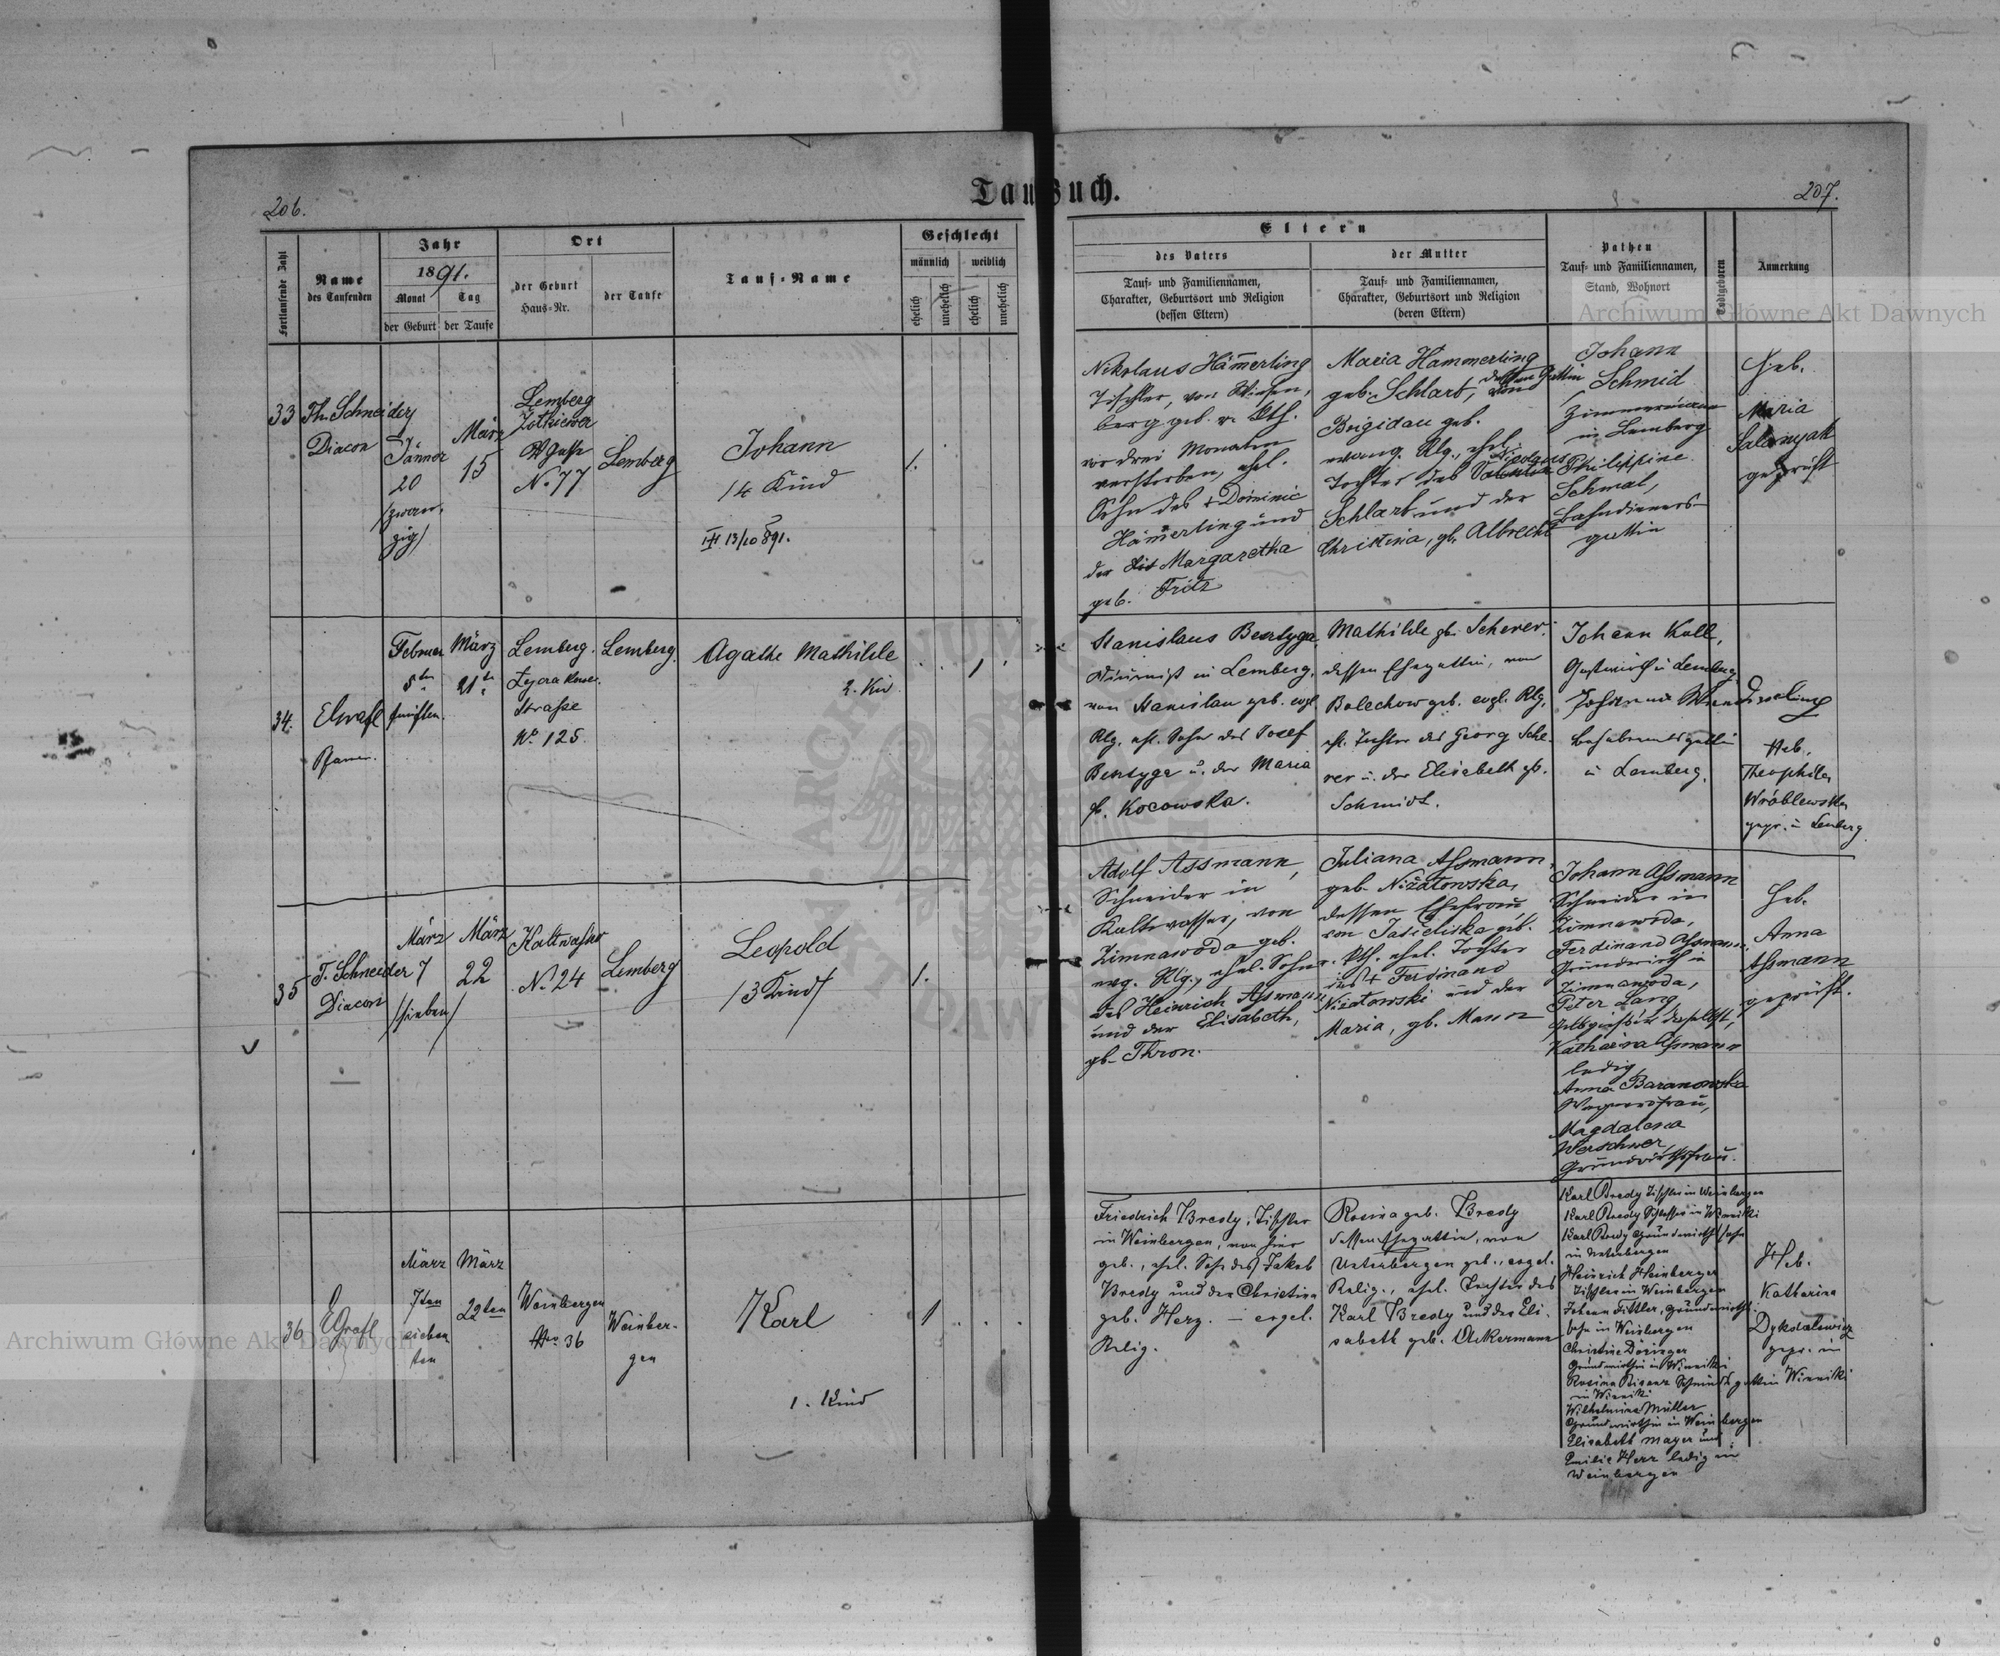 206.
Taufbuch.
207.
Fortlaufende Zahl
Name
des Taufenden
Jahr
1891.
Monat
Tag
der Geburt
der Taufe
Ort
der Geburt
Haus-Nr.
der Taufe
Tauf-Name
Geschlecht
männlich
weiblich
ehelich
unehelich
ehelich
unehelich
Eltern
des Vaters
Tauf- und Familiennamen,
Charakter, Geburtsort und Religion
(dessen Eltern)
der Mutter
Tauf- und Familiennamen,
Charakter, Geburtsort und Religion
(deren Eltern)
Pathen
Tauf- und Familiennamen,
Stand, Wohnort
Todtgeboren
Anmerkung
Archiwum Główne Akt Dawnych
33
Th. Schneider
Diacon
Jänner
20
(zwan-
zig)
März
15
Lemberg
Gasse
No 77
Lemberg
Johann
14 Kind
13/10 891.
1.
Nikolaus Hämerling
Tischler, von Wiesen-
berg geb. r. kth.
vor drei Monaten
verstorben, ehel.
Sohn des + Dominic
Hämerling und
der Margaretha
geb. Fritz
Maria Hammerling
geb. Schlarb, dessen Gattin von
Brigidau geb.
evang. Rlg., ehel.
Tochter des
Schlarb und der
Christina, gb. Albrecht
Johann
Schmid
Zimmermann
in Lemberg
Philippine
Schmal,
Bahndieners-
gattin
Heb.
Maria
geprüft
34.
Pfarrer.
Februar
5ten
fünften.
März
21te
Lemberg.
Straße
No. 125.
Lemberg.
Agathe Mathilde
2. Kind
1
Stanislaus Bentyga
in Lemberg,
von Stanislau geb. evgl.
Rlg. ehl. Sohn des Josef
Bentyga u. der Maria
gb. Kocowska.
Mathilde gb. Scherer,
dessen Ehegattin, von
Bolechow geb. evgl. Rlg.
ehl. Tochter des Georg Sche-
rer u. der Elisabeth gb.
Schmidt.
Johann Koll,
Gastwirth in Lemberg
Johanna
in Lemberg.
Heb.
Theophila
Wróblewska
gepr. in Lemberg
35
T. Schneider
Diacon
März
7
(sieben)
März
22
Kaltwasser
No 24
Lemberg
Leopold
(3 Kind)
1.
Adolf Assmann,
Schneider in
Kaltwasser, von
Zimnawoda geb.
evg. Rlg., ehel. Sohn
des Heinrich Aßmann
und der Elisabeth,
gb. Thron.
Juliana Aßmann,
geb. Niżatowska,
dessen Ehefrau
von Jasieniska geb.
r. kth. ehel. Tochter
des + Ferdinand
Niżatowski und der
Maria, gb. Mann
Johann Aßmann
Schneider in
Zimnawoda,
Ferdinand Aßmann
Grundwirth in
Zimnawoda,
Peter Lang,
daselbst,
Katharina Aßmann
ledig,
Anna Baranowska
Magdalena
Werschner,
Grundwirthsfrau.
Heb.
Anna
Aßmann
geprüft.
36
EGrafl
März
7ten
sieben
ten
März
22ten
Weinbergen
Nro 36
Weinber-
gen
Karl
1. Kind
1
Friedrich Bredy, Tischler
in Weinbergen, von hier
geb., ehel. Sohn des Jakob
Bredy und der Christina
geb. Herz. – evgel.
Relig.
Rosina geb. Bredy
dessen Ehegattin, von
Unterbergen geb., evgel.
Relig., ehel. Tochter des
Karl Bredy und der Eli-
sabeth geb. Ackermann
Karl Bredy Tischler in Weinbergen
Karl Bredy Schlosser in Winniki
Karl Bredy Grundwirthssohn
in Unterbergen
Heinrich Heinberger
Tischler in Weinbergen
Johann Fittler, Grundwirths-
sohn in Weinbergen
Christine Döringer
Grundwirthin in Winniki
Rosina Schmidsgattin
in Winniki
Wilhelmine Müller
Grundwirthin in Weinbergen
Elisabeth Mayer und
Emilie Herz ledig in
Weinbergen
Heb.
Katharina
Dykdalewicz
gepr. in
Winniki
Archiwum Główne Akt Dawnych